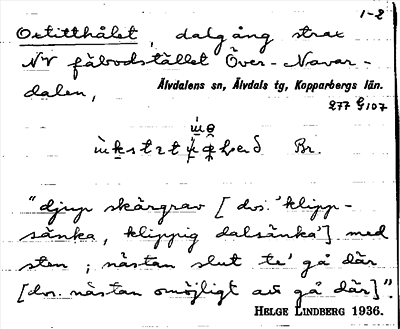 1-2
Oxtitthålet, dalgång strax
NV fäbodstället Över-Navar-
dalen,
Älvdalens sn, Älvdals tg, Kopparbergs län.
277 G 107
Br.
"djup skårgrav [dvs. 'klipp-
sänka, klippig dalsänka'] med
sten; nästan slut te' gå där
[dvs. nästan omöjligt att gå där]".
HELGE LINDBERG 1936.